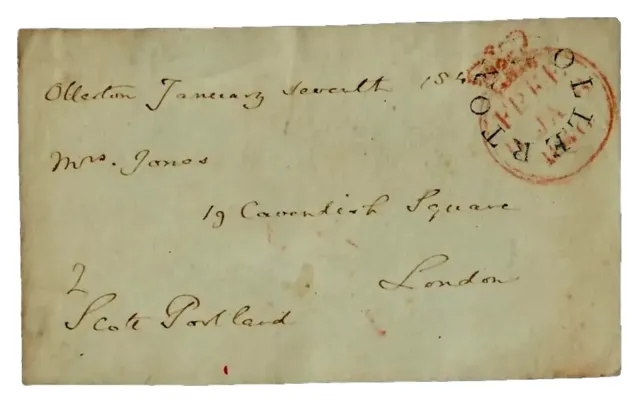 Ollerton January seventh 184
Mrs. Jones
19 Cavendish Square
London
Scott Portland
OLLERTON
FREE
JA